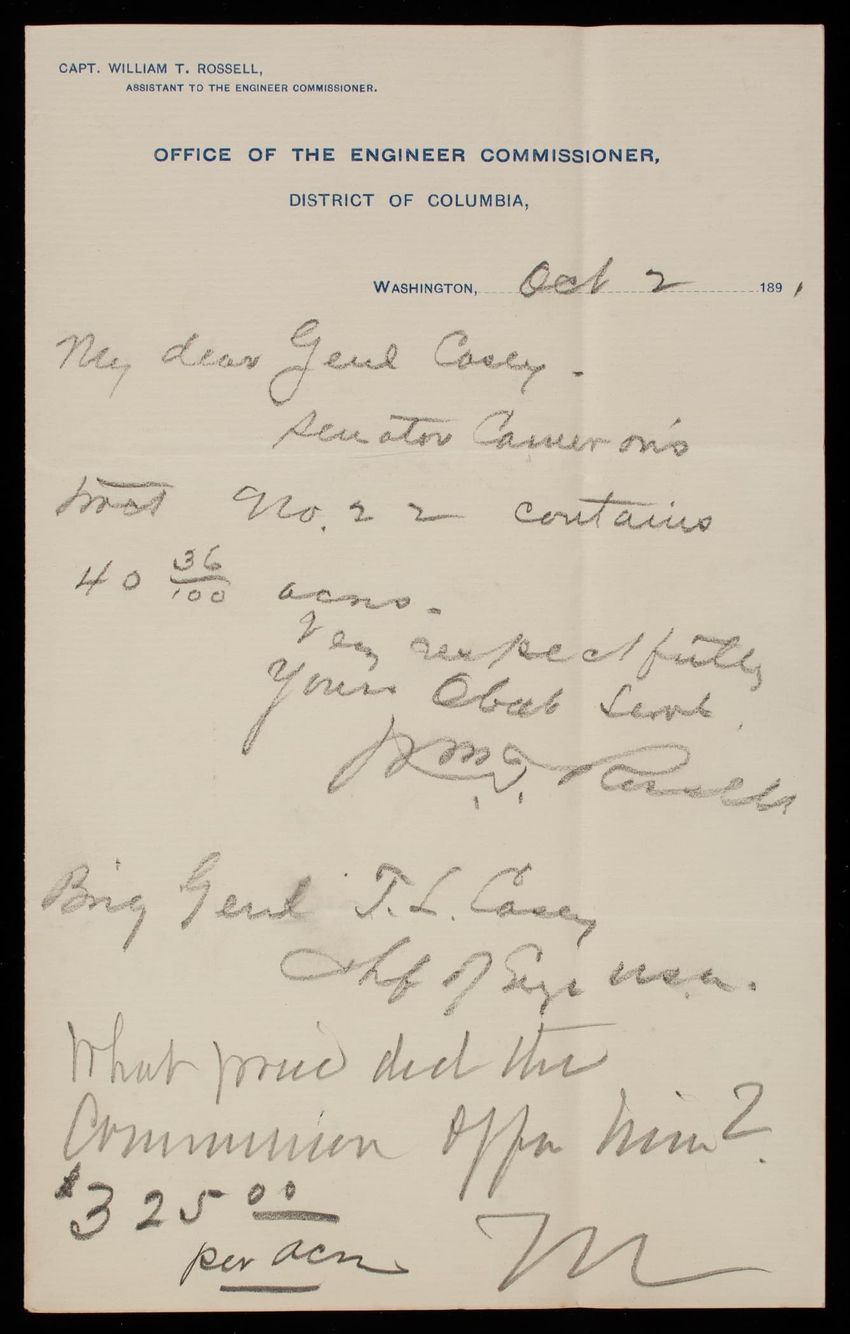 CAPT. WILLIAM T. ROSSELL,
ASSISTANT TO THE ENGINEER COMMISSIONER.
OFFICE OF THE ENGINEER COMMISSIONER,
DISTRICT OF COLUMBIA,
WASHINGTON, Oct 2 1891
My dear Genl Casey.
Senator Cameron's
tract No. 22 contains
40 36/100 acres.
Very respectfully
Yours Obdt Servt.
Wm T. Rossell
Brig Genl T. L. Casey
Chf of Engs U.S.A.
What price did the
Commission offer him?
$325 00
per acre